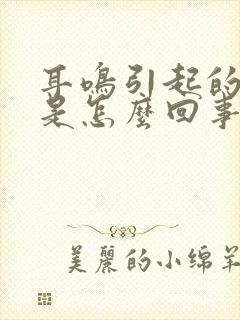 耳鳴引起的
是怎麼回事
美麗的小绵羊